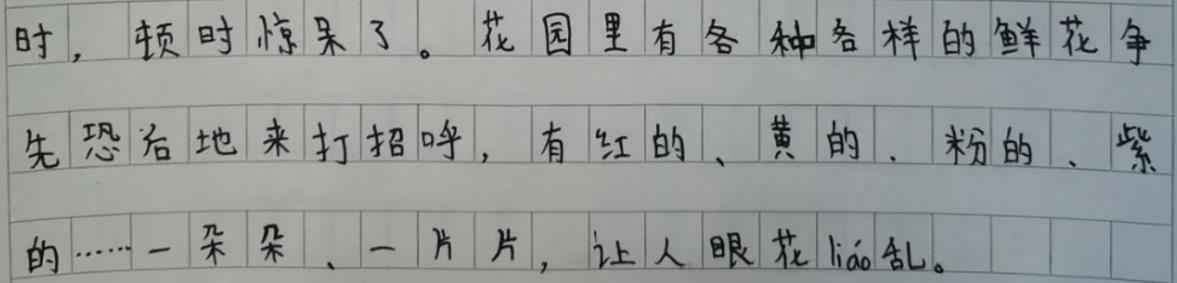 时，顿时惊呆了。花园里有各种各样的鲜花争
先恐后地来打招呼，有红的、黄的、粉的、紫
的……一朵朵、一片片，让人眼花liáo乱。